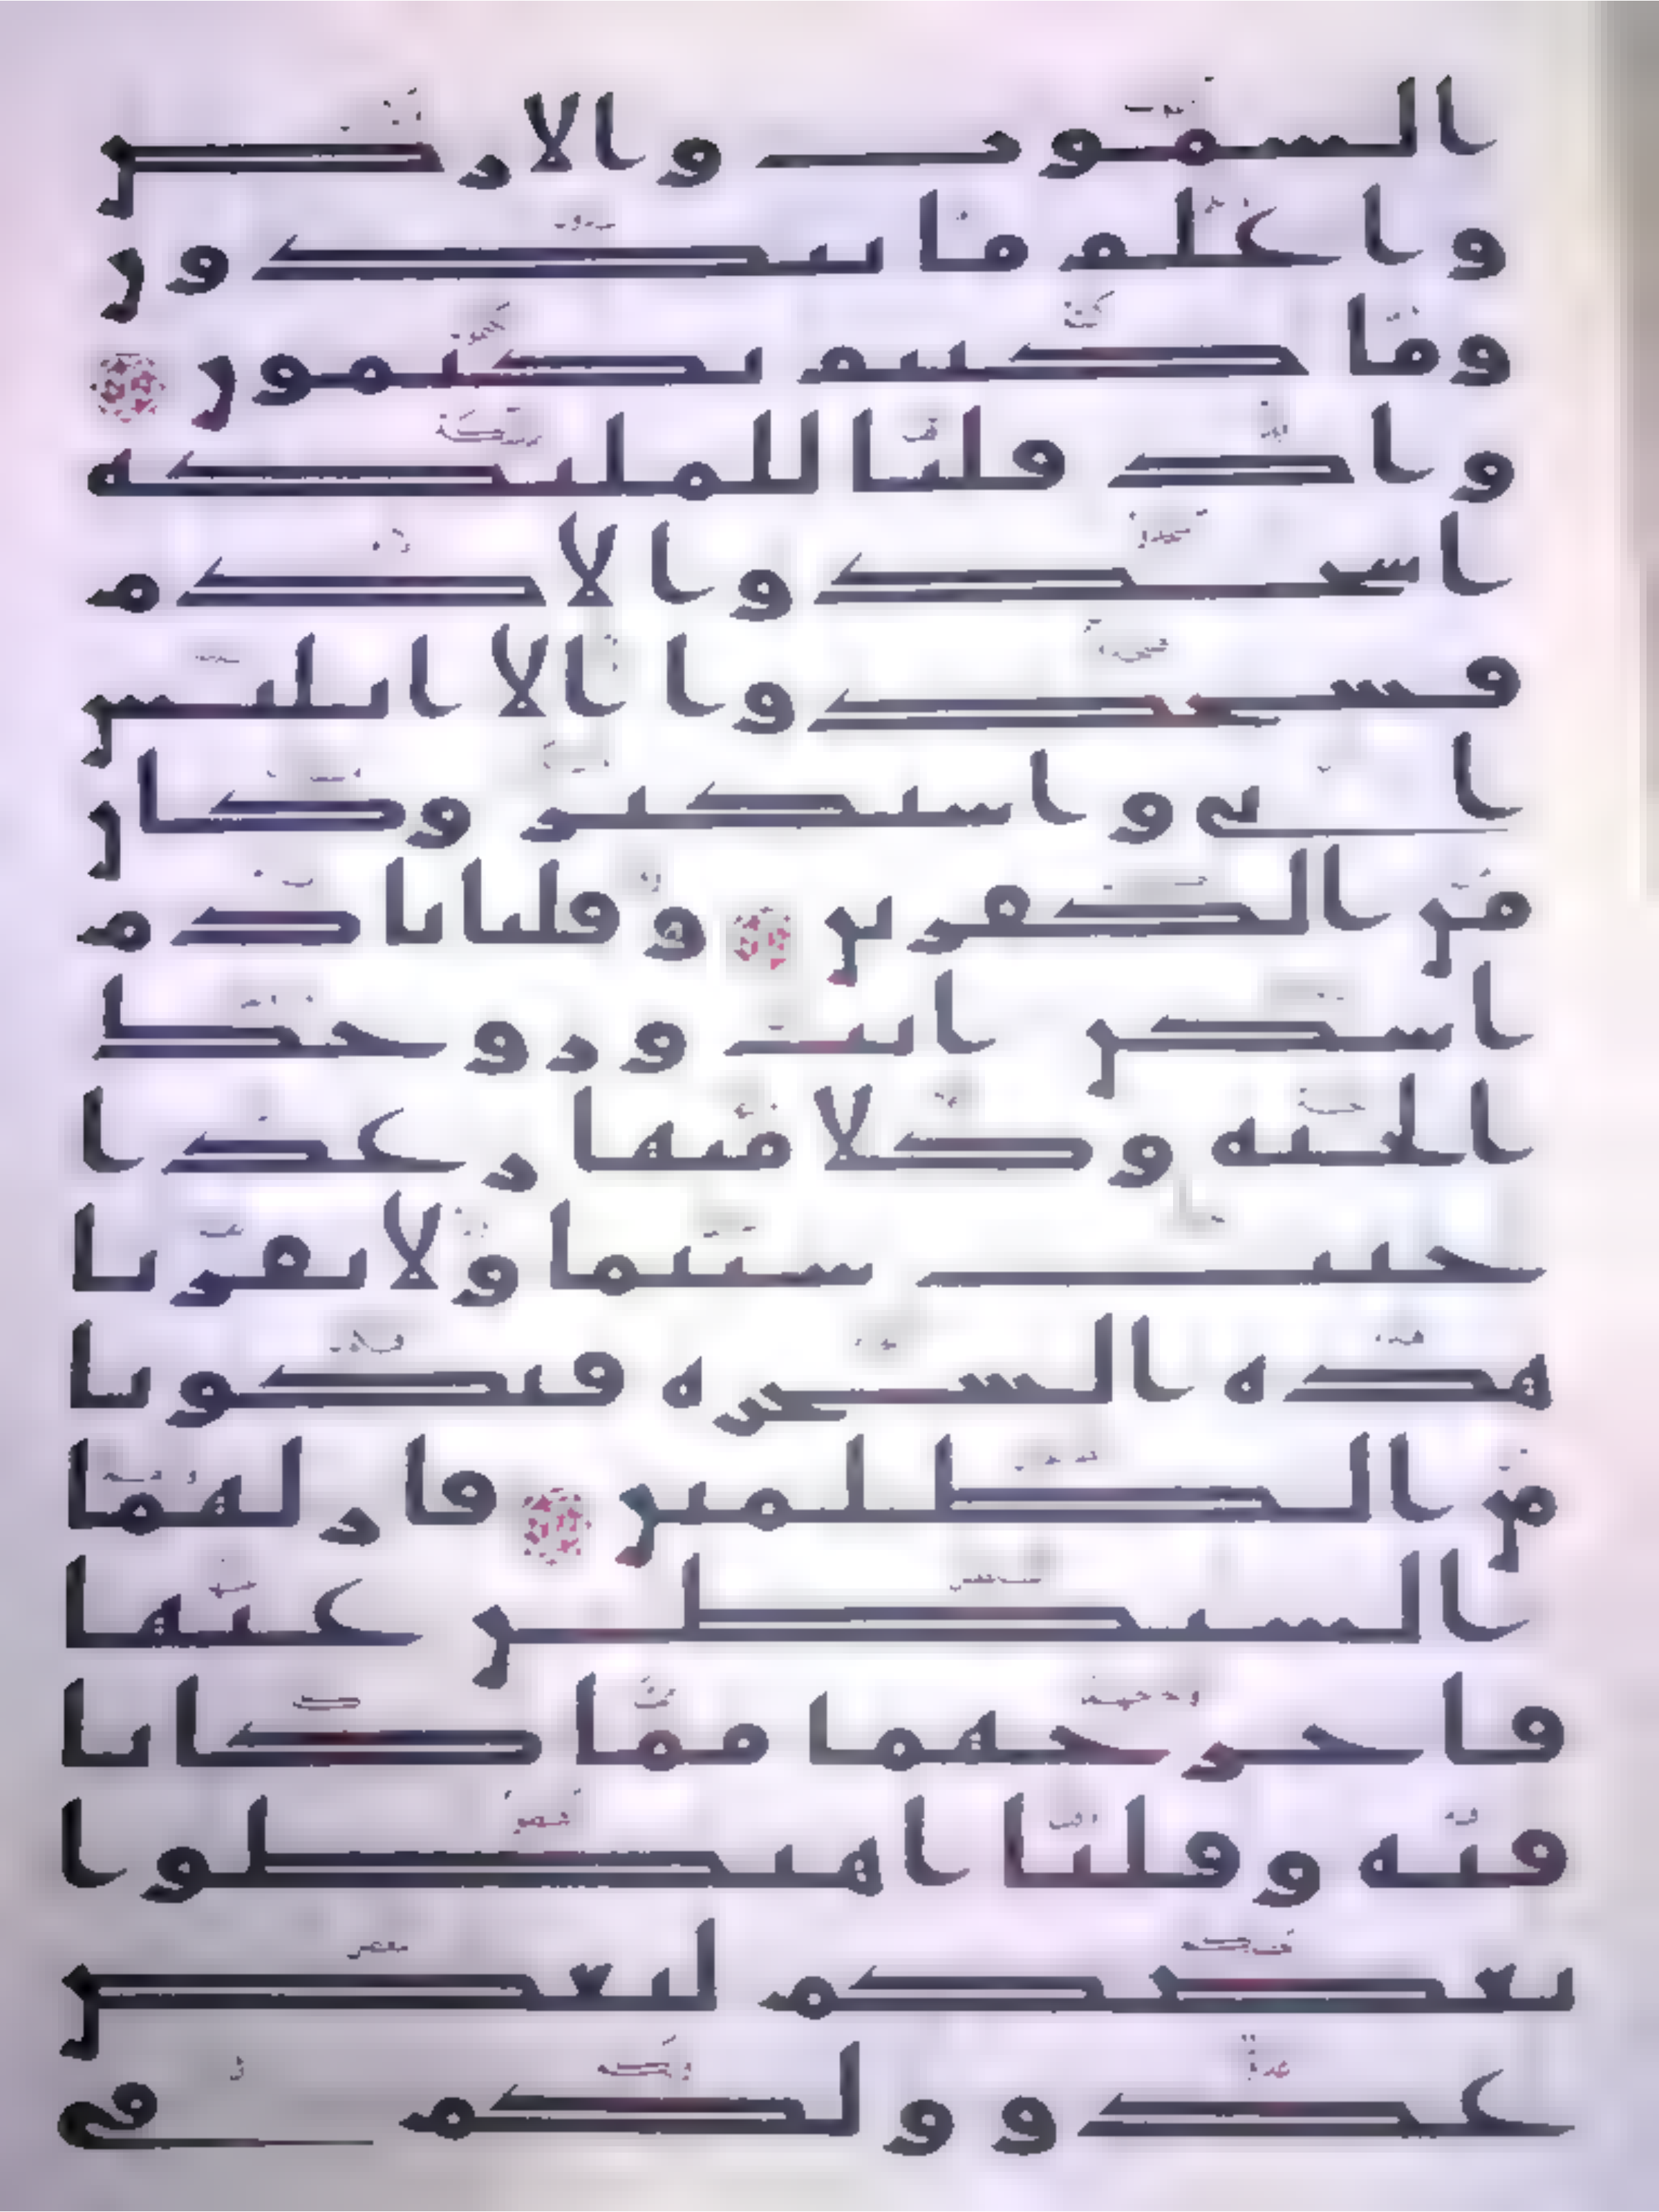 السموت والارض
واعلم ما تبدون
وما كنتم تكتمون
واذ قلنا للمليكة
اسجدوا لادم
فسجدوا الا ابليس
ابى واستكبر وكان
من الكفرين وقلنا يادم
اسكن انت وزوجك
الجنة وكلا منها رغدا
حيث شئتما ولا تقربا
هذه الشجرة فتكونا
من الظلمين فازلهما
الشيطن عنها
فاخرجهما مما كانا
فيه وقلنا اهبطوا
بعضكم لبعض
عدو ولكم في